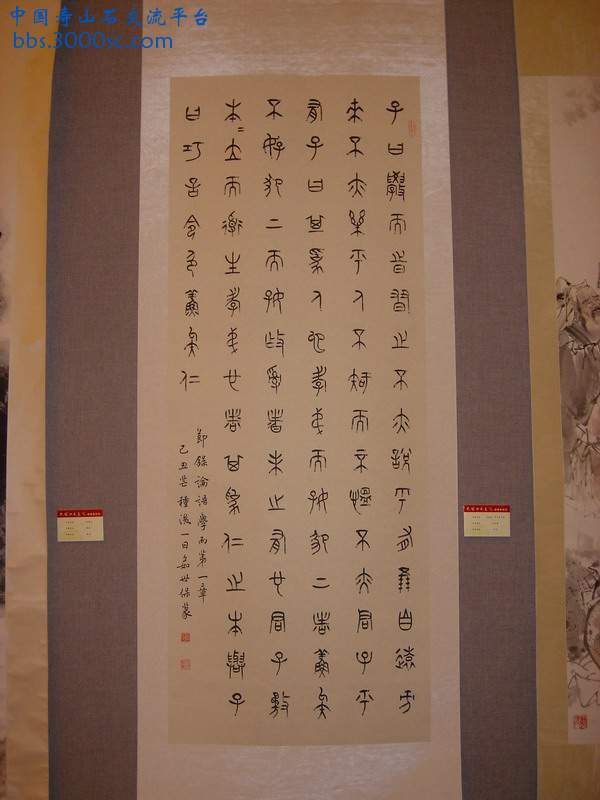 中国寿山石交流平台
bbs.3000sc.com
子曰學而時習之不亦說乎有朋自遠方
來不亦樂乎人不知而不慍不亦君子乎
有子曰其為人也孝弟而好犯上者鮮矣
不好犯上而好作亂者未之有也君子務
本=立而道生孝弟也者其為仁之本與子
曰巧言令色鮮矣仁
節錄論語學而第一章
己丑芒種後一日世保篆